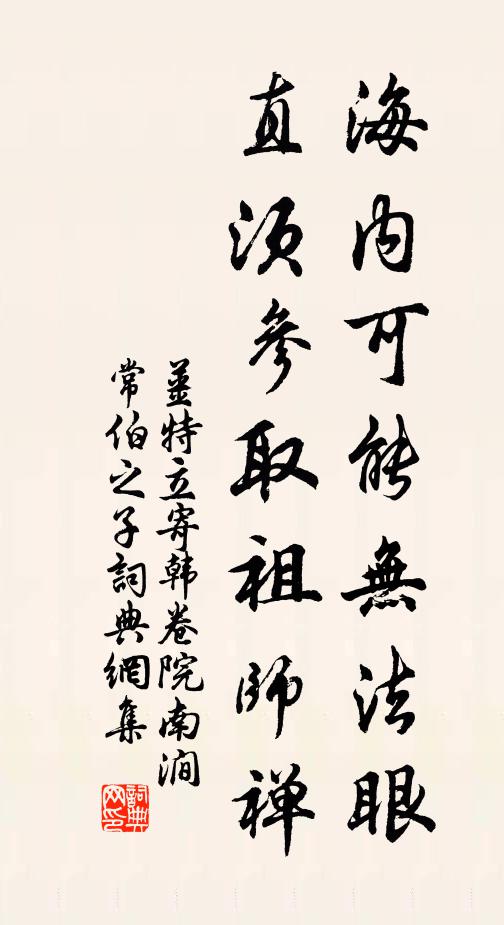 海内可能無法眼
直須參取祖師禅
薑特立寄韩卷院南澗
常伯之子詞典網集
詞典网印